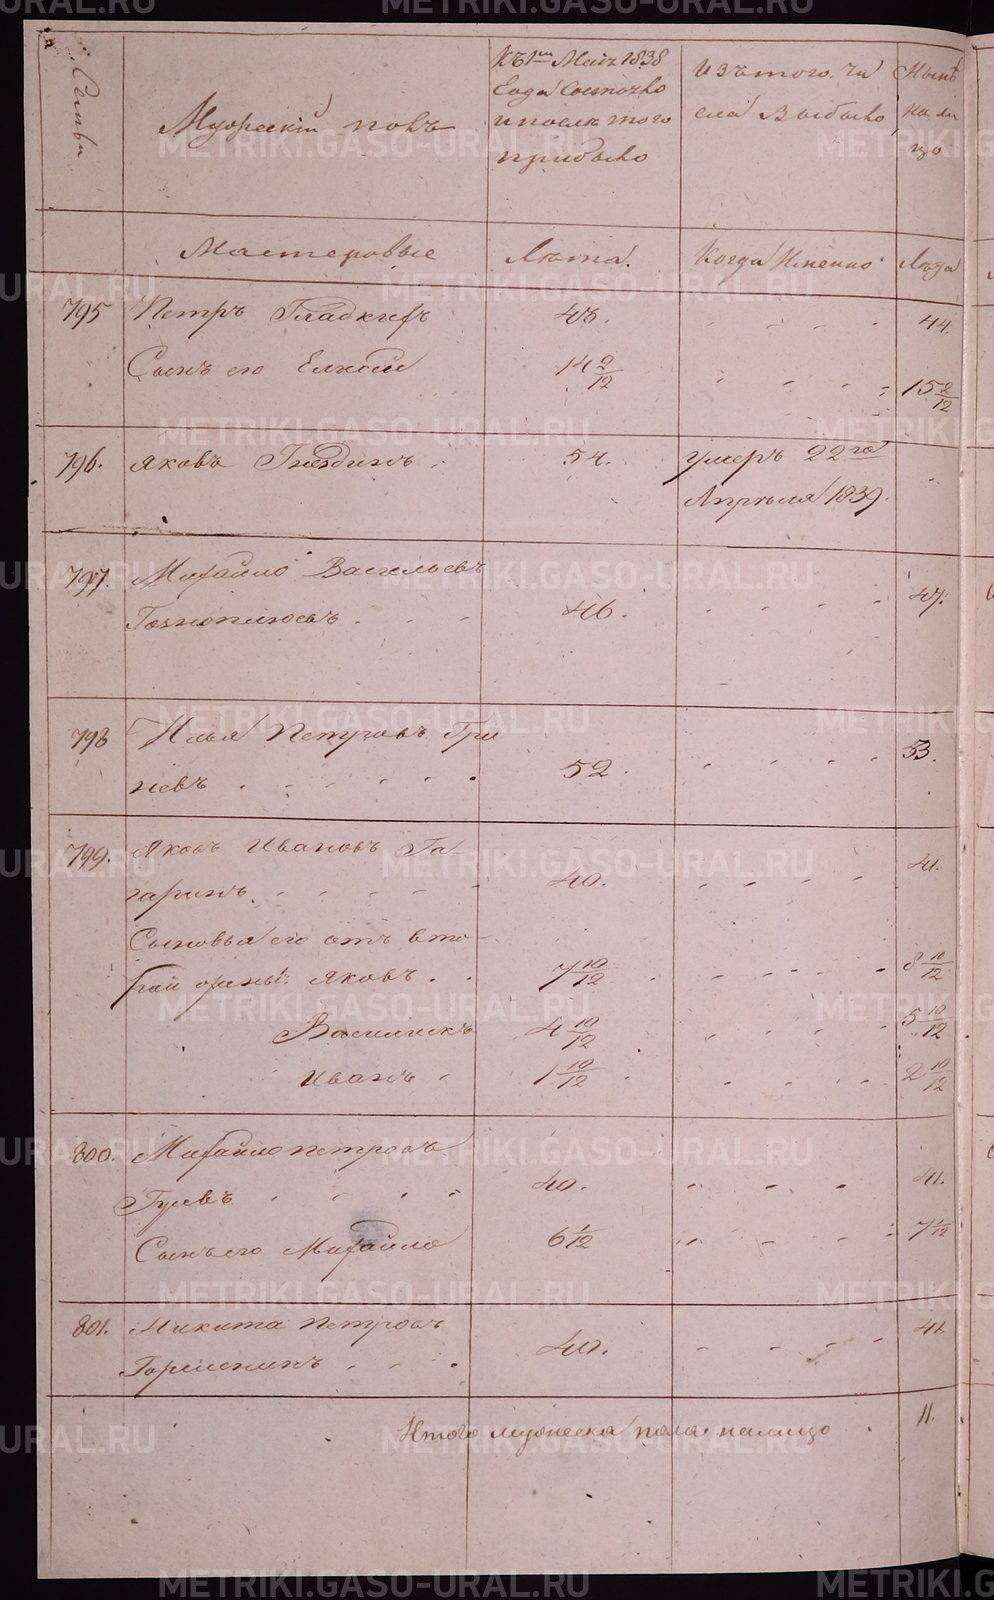 Семьи
Мужескiй полъ
Къ 1му Маiя 1838
Года Состояло
и после того
прибыло
Изъ того чи
сла Выбыло
Ныне
на ли
цо
Мастеровые
Лета.
Когда Именно
Лета
795 Петръ Гладкихъ 43. 44.
Сынъ его Елисей 14 2/12 15 2/12
796. Яковъ Гнездинъ 54. умеръ 22го
Апреля 1839.
797. Михайло Васильевъ 47.
46.
798 Илья Петровъ Гри 53.
невъ 52.
799. Яковъ Ивановъ Га 41.
гаринъ 40.
Сыновья его отъ вто
рой Яковъ 7 10/12 8 10/12
4 10/12 5 10/12
Иванъ 1 10/12 2 10/12
800. Михайло Петровъ
Гуевъ 40. 41.
Сынъ его Михайло 6 1/12 7 1/12
801. Никита Петровъ 41.
40.
Итого мужеска пола налицо 11.
METRIKI.GASO-URAL.RU